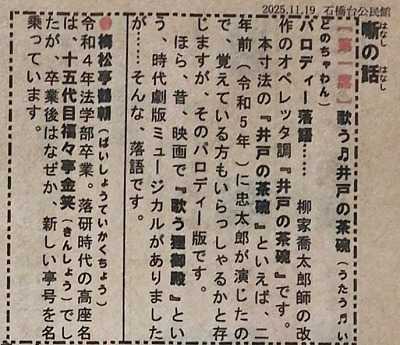 2025.11.19 石橋台公民館
噺の話
はなし はなし
【第一席】歌う♬井戸の茶碗(うたう♬い
どのちゃわん)
パロディー落語…… 柳家喬太郎師の改
作のオペレッタ調『井戸の茶碗』です。
本寸法の『井戸の茶碗』といえば、二
年前(令和5年)に忠太郎が演じたの
で、覚えている方もいらっしゃるかと存
じますが、そのパロディー版です。
ほら、昔、映画で『歌う狸御殿』とい
う、時代劇版ミュージカルがありました
が……そんな、落語です。
●梅松亭鶴朝(ばいしょうていかくちょう)
令和4年法学部卒業。落研時代の高座名
は、十五代目福々亭金笑(きんしょう)でし
たが、卒業後はなぜか、新しい亭号を名
乗っています。